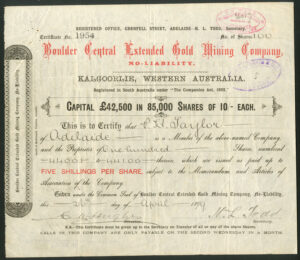 REGISTERED OFFICE, GRENFELL STREET, ADELAIDE - N. L. TODD, Secretary.
Certificate No. 1954 No. of Shares 100
Boulder Central Extended Gold Mining Company,
NO-LIABILITY.
KALGOORLIE, WESTERN AUSTRALIA.
Registered in South Australia under "The Companies Act, 1892."
CAPITAL £42,500 IN 85,000 SHARES OF 10/- EACH.
This is to Certify that Taylor
of Adelaide is a Member of the above-named Company,
and the Proprietor of One hundred Shares, numbered
44001 to 44100 which are issued as paid up to
FIVE SHILLINGS PER SHARE, subject to the Memorandum and Articles of
Association of the Company.
Given under the Common Seal of Boulder Central Extended Gold Mining Company, No-Liability,
this day of April 1899
N. L. Todd
Secretary.
N.B.—This Certificate must be given up to the Secretary on Transfer of all or any of the above Shares.
CALLS IN THIS COMPANY ARE ONLY PAYABLE ON THE SECOND WEDNESDAY IN A MONTH.